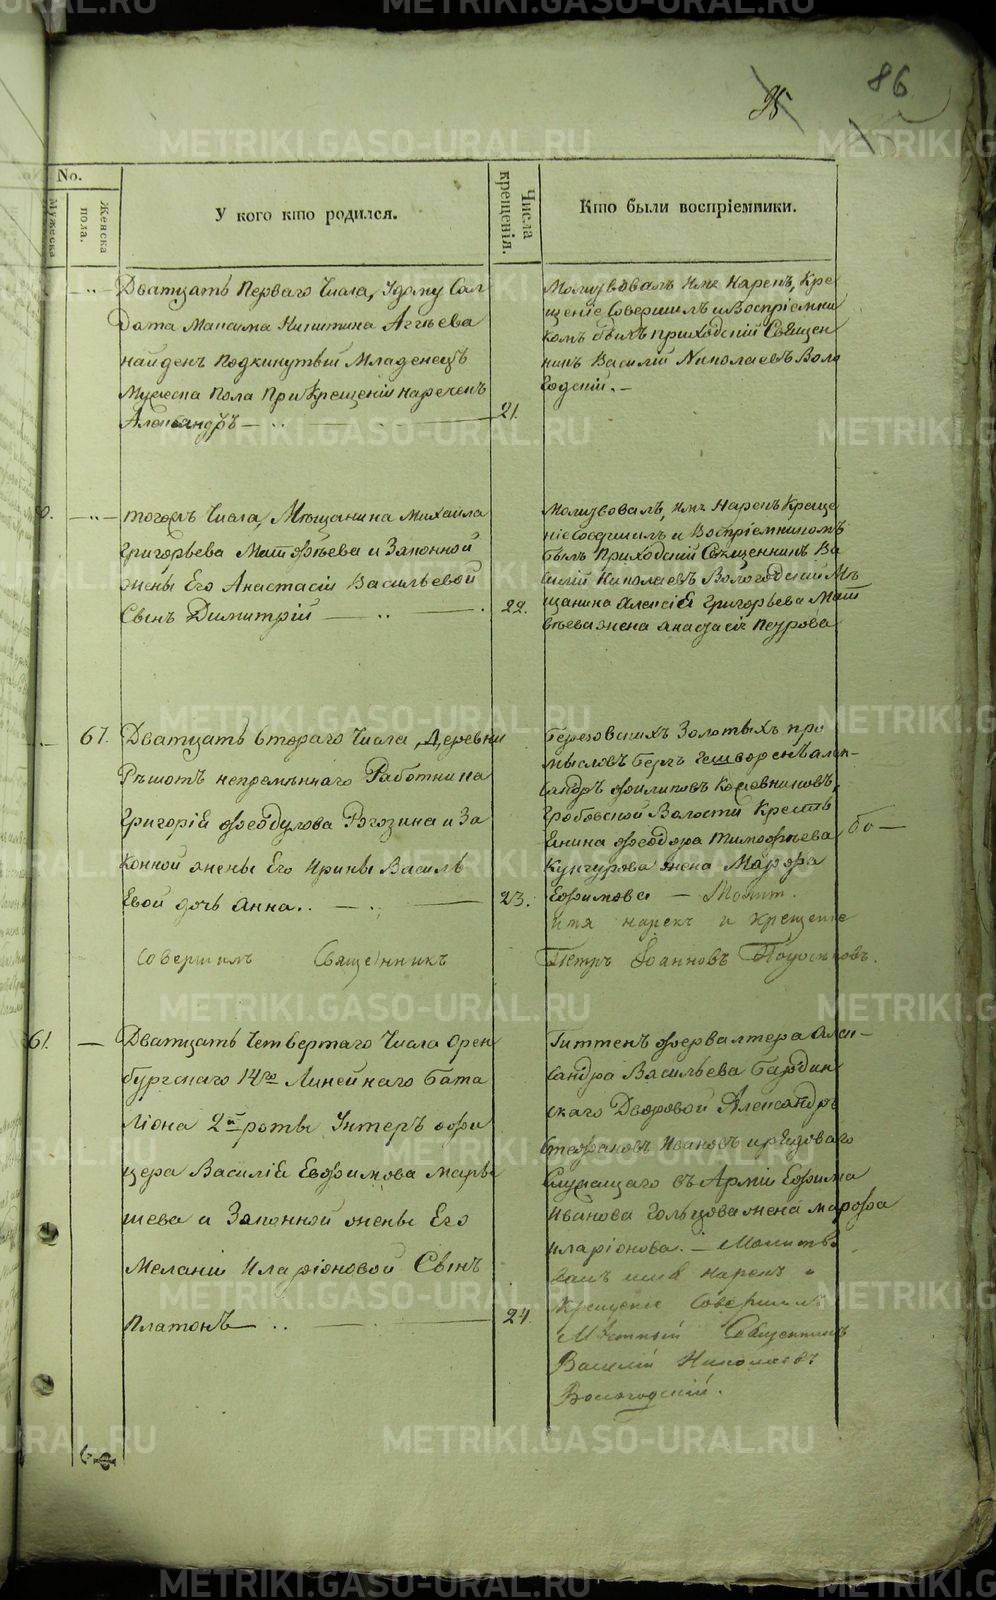 86
No.
Мужеска
Женска
пола.
У кого кто родился.
Числа
крещенія.
Кто были воспріемники.
Дватцать Перваго Числа, Удому Сол
дата Максима Никитина Аггѣева
найденъ подкинутый Младенецъ
Мужеска пола При Крещеніи нареченъ
Александръ
21.
Молитвовалъ Имя Нарекъ, Кре
щеніе Совершилъ и Воспріемни
комъ былъ приходскій Священ
никъ Василій Николаевъ Воло
годскій. —
тогожъ Числа, Мѣщанина Михаила
Григорьева Матофѣева и Законной
жены Его Анастасіи Васильевой
Сынъ Димитрій
22.
Молитвовалъ, Имя Нарекъ Креще
ніе Совершилъ и Воспріемникомъ
былъ Приходскій Священникъ Ва
силій Николаевъ Вологодскій Мѣ
щанина Алексіѣ Григорьева Мат
вѣева жена Анастасія Петрова
67.
Дватцать втораго Числа, Деревни
Рѣшотъ непремѣннаго Работника
Григорія Феодулова Рогзина и За
конной жены Его Ирины Василь
Евой дочь Анна..
23.
Березовскихъ Золотыхъ про
мысловъ Бергъ Гешворенъ Алек-
сандръ Филиповъ Кожевниковъ,
Гробовской Волости Кресть
янина Феодора Тимофѣева
Кунгурова жена Марфа
Ефимова — Молит.
во —
имя нарекъ и крещеніе
Совершилъ Священникъ Петръ Іоанновъ
61.
Дватцать Четвертаго Числа Орен
бургскаго 14го Линейнаго Бата
ліона 2й роты Унтеръ офи
цера Василіѣ Евфимова Мары
шева и Законной жены Его
Меланіи Иларіоновой Сынъ
Платонъ
24.
Гиттенъ Фервалтера Алек-
сандра Васильева Бардин
скаго Дворовой Александръ
Стефановъ Ивановъ и рядоваго
Служащаго въ Арміи Ефима
Иванова Гольцова жена Марфа
Иларіонова. — Молитво
валъ имя нарекъ и
Крещеніе Совершилъ
Мѣстный Священникъ
Василій Николаевъ
Вологодскій.
METRIKI.GASO-URAL.RU